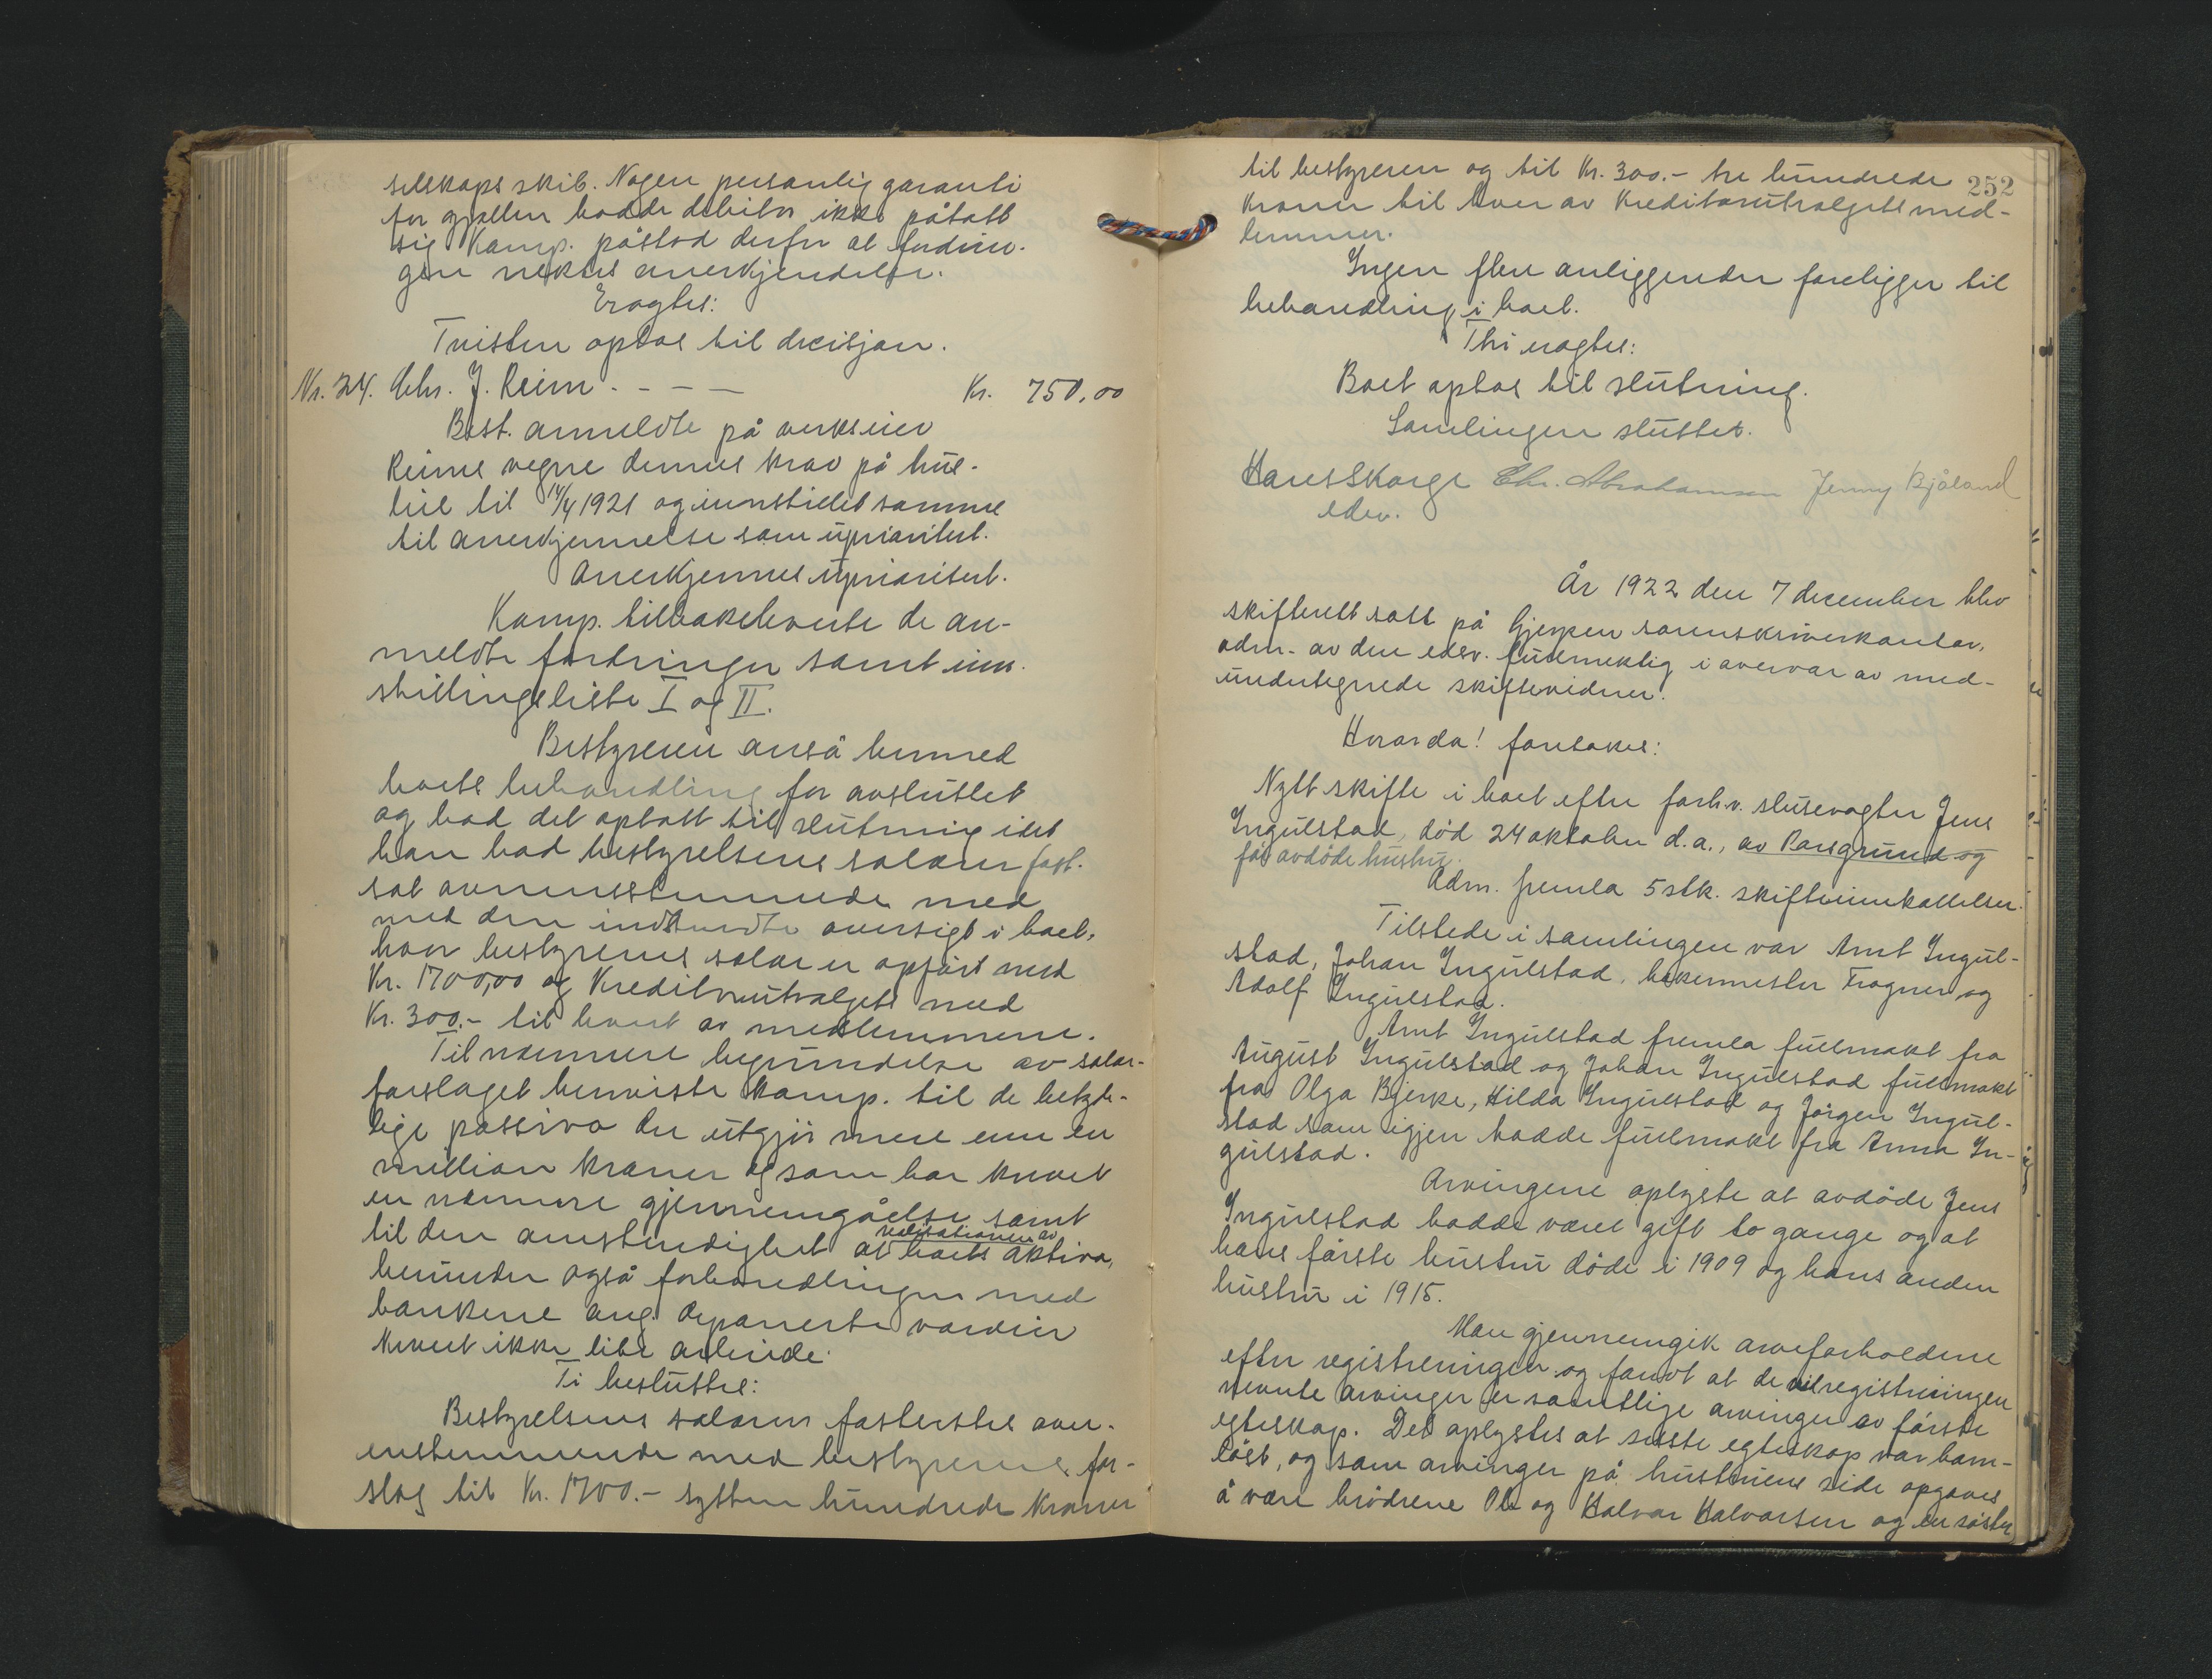 selskaps skib. Nogen personlig garanti
for gjælden hadde debitor ikke påtatt
sig. Komp. påstod derfor at fordrin-
gen nektes anerkjendelse.
Eragtes:
Tvisten optas til decisjon.
Nr. 24. Chr. J. Reim - - - - Kr. 750,00
Best. anmeldte på verkseier
Reims vegne dennes krav på hus-
leie til 14/4 1921 og innstillet samme
til anerkjennelse som uprioritert.
Anerkjennes uprioritert.
Komp. tilbakeleverte de an-
meldte fordringer samt inn-
stillingsliste I og II.
Bestyreren anså hermed
boets behandling for avsluttet
og bad det optatt til slutning idet
han bad bestyrelsens salærer fast-
sat overensstemmende med
med den indsendte oversigt i boet,
hvor bestyrerens salær er opført med
Kr. 1700,00 og Kreditorutvalgets med
Kr. 300.- til hvert av medlemmene.
Til nærmere begrundelse av salær-
forslaget henviste komp. til de betyde-
lige passiva der utgjør mere enn en
million kroner og som har krevet
en nærmere gjennemgåelse samt
til den omstendighet at realisationen av boets aktiva,
herunder også forhandlinger med
bankene ang. deponerte værdier
krevet ikke lite arbeide.
Ti besluttes:
Bestyrelsens salærer fastsettes over-
ensstemmende med bestyrerens for-
slag til Kr. 1700.- sytten hundrede kroner
252
til bestyreren og til Kr. 300.- tre hundrede
kroner til hver av Kreditorutvalgets med-
lemmer.
Ingen flere anliggender foreligger til
behandling i boet.
Thi eragtes:
Boet optas til slutning.
Samlingen sluttet.
Hans Skorge Chr. Abrahamsen Jenny Bjåland
edsv.
År 1922 den 7 december blev
skifterett satt på Gjerpen sorenskriverkontor,
adm. av den edsv. fuldmektig i overvær av med-
undertegnede skiftevidner.
Hvorda! foretokes:
Nytt skifte i boet efter forhv. slusevogter Jens
Ingulstad, død 24 oktober d.a., av Porsgrund og
før avdøde hustru.
Adm. fremla 5 stk. skifteinnkallelser.
Tilstede i samlingen var Arnt Ingul-
stad, Johan Ingulstad, bakermester Fragner og
Adolf Ingulstad.
Arnt Ingulstad fremla fuldmakt fra
August Ingulstad og Johan Ingulstad fuldmakt
fra Olga Bjerke, Hilda Ingulstad og Jørgen Ingul-
stad som igjen hadde fuldmakt fra Anna In-
gulstad.
Arvingene oplyste at avdøde Jens
Ingulstad hadde været gift to gange og at
hans første hustru døde i 1909 og hans anden
hustru i 1915.
Man gjennemgik arveforholdene
efter registreringen og fandt at de ved registreringen
nevnte arvinger er samtlige arvinger av første
egteskap. Det oplystes at siste egteskap var barn-
løst, og som arvinger på hustruens side opgaves
å være brødrene Ole og Halvor Halvorsen og en søster